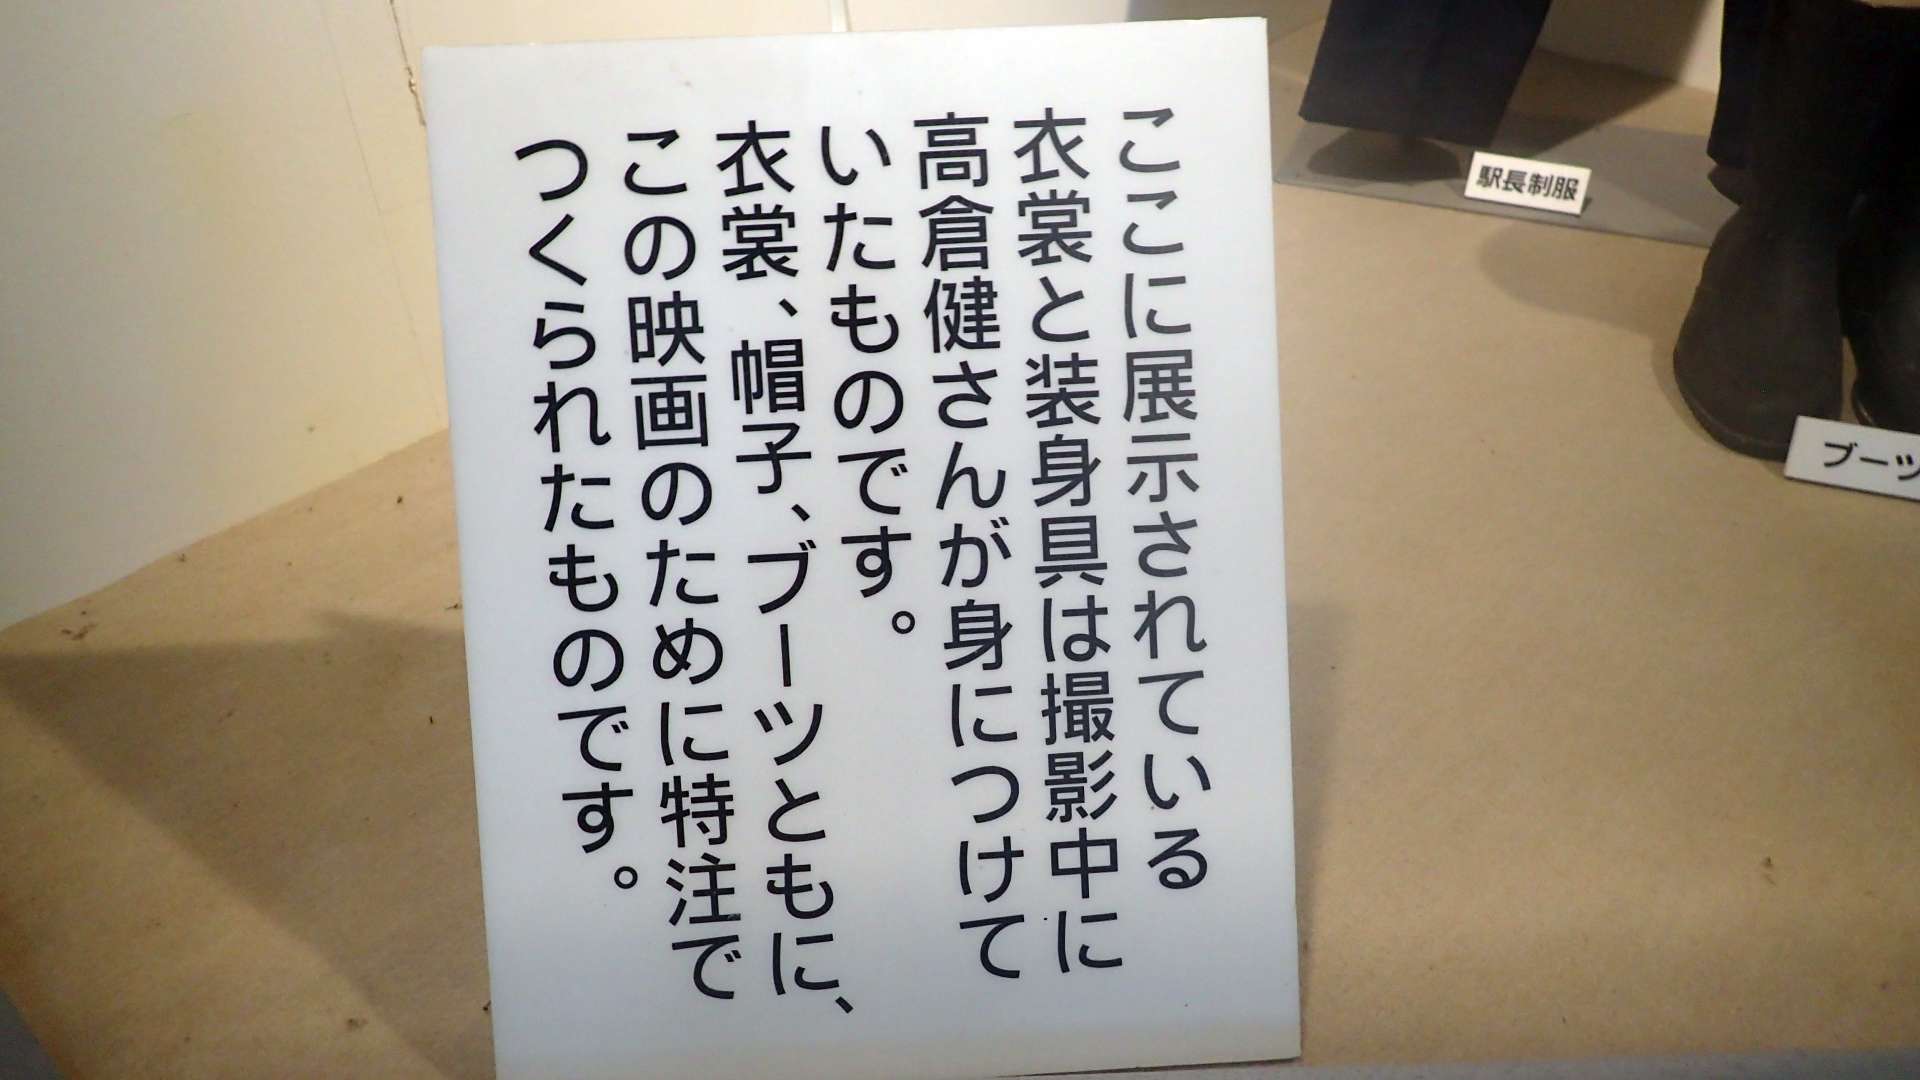 ここに展示されている
衣裳と装身具は撮影中に
高倉健さんが身につけて
いたものです。
衣裳、帽子、ブーツともに、
この映画のために特注で
つくられたものです。
駅長制服
ブーツ